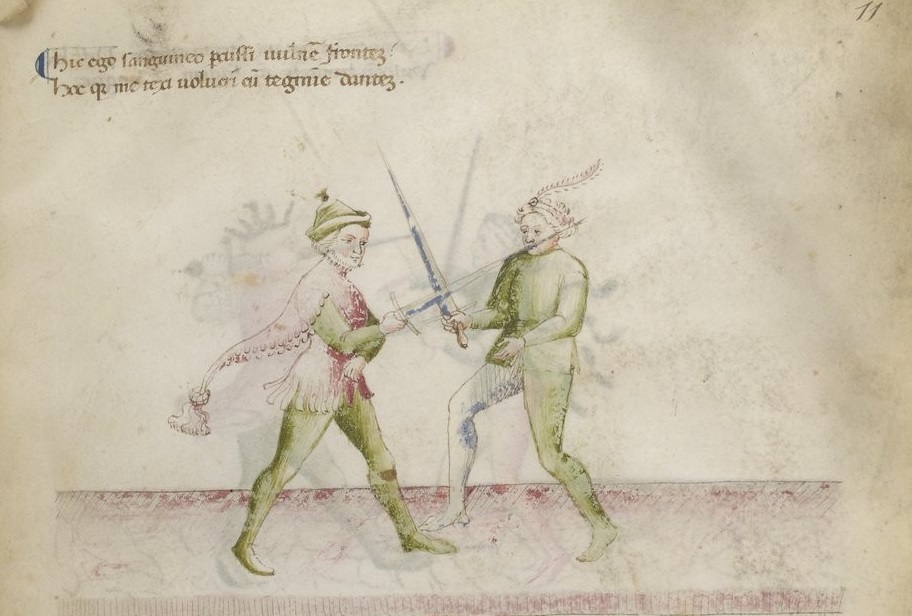 11
hic ego sanguineo pcussi uulnē frontez:
hoc qr me texi uolucri cū tegmīe dantez.